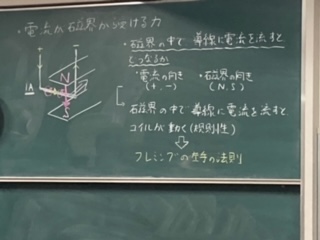 ・電流が磁界から受ける力
・磁界の中で 導線に電流を流すと
どうなるか
・電流の向き
(+,-)
・磁界の向き
(N.S)
1A
N
S
磁界の中で 導線に電流を流すと
コイルが動く(規則性)
フレミングの左手の法則